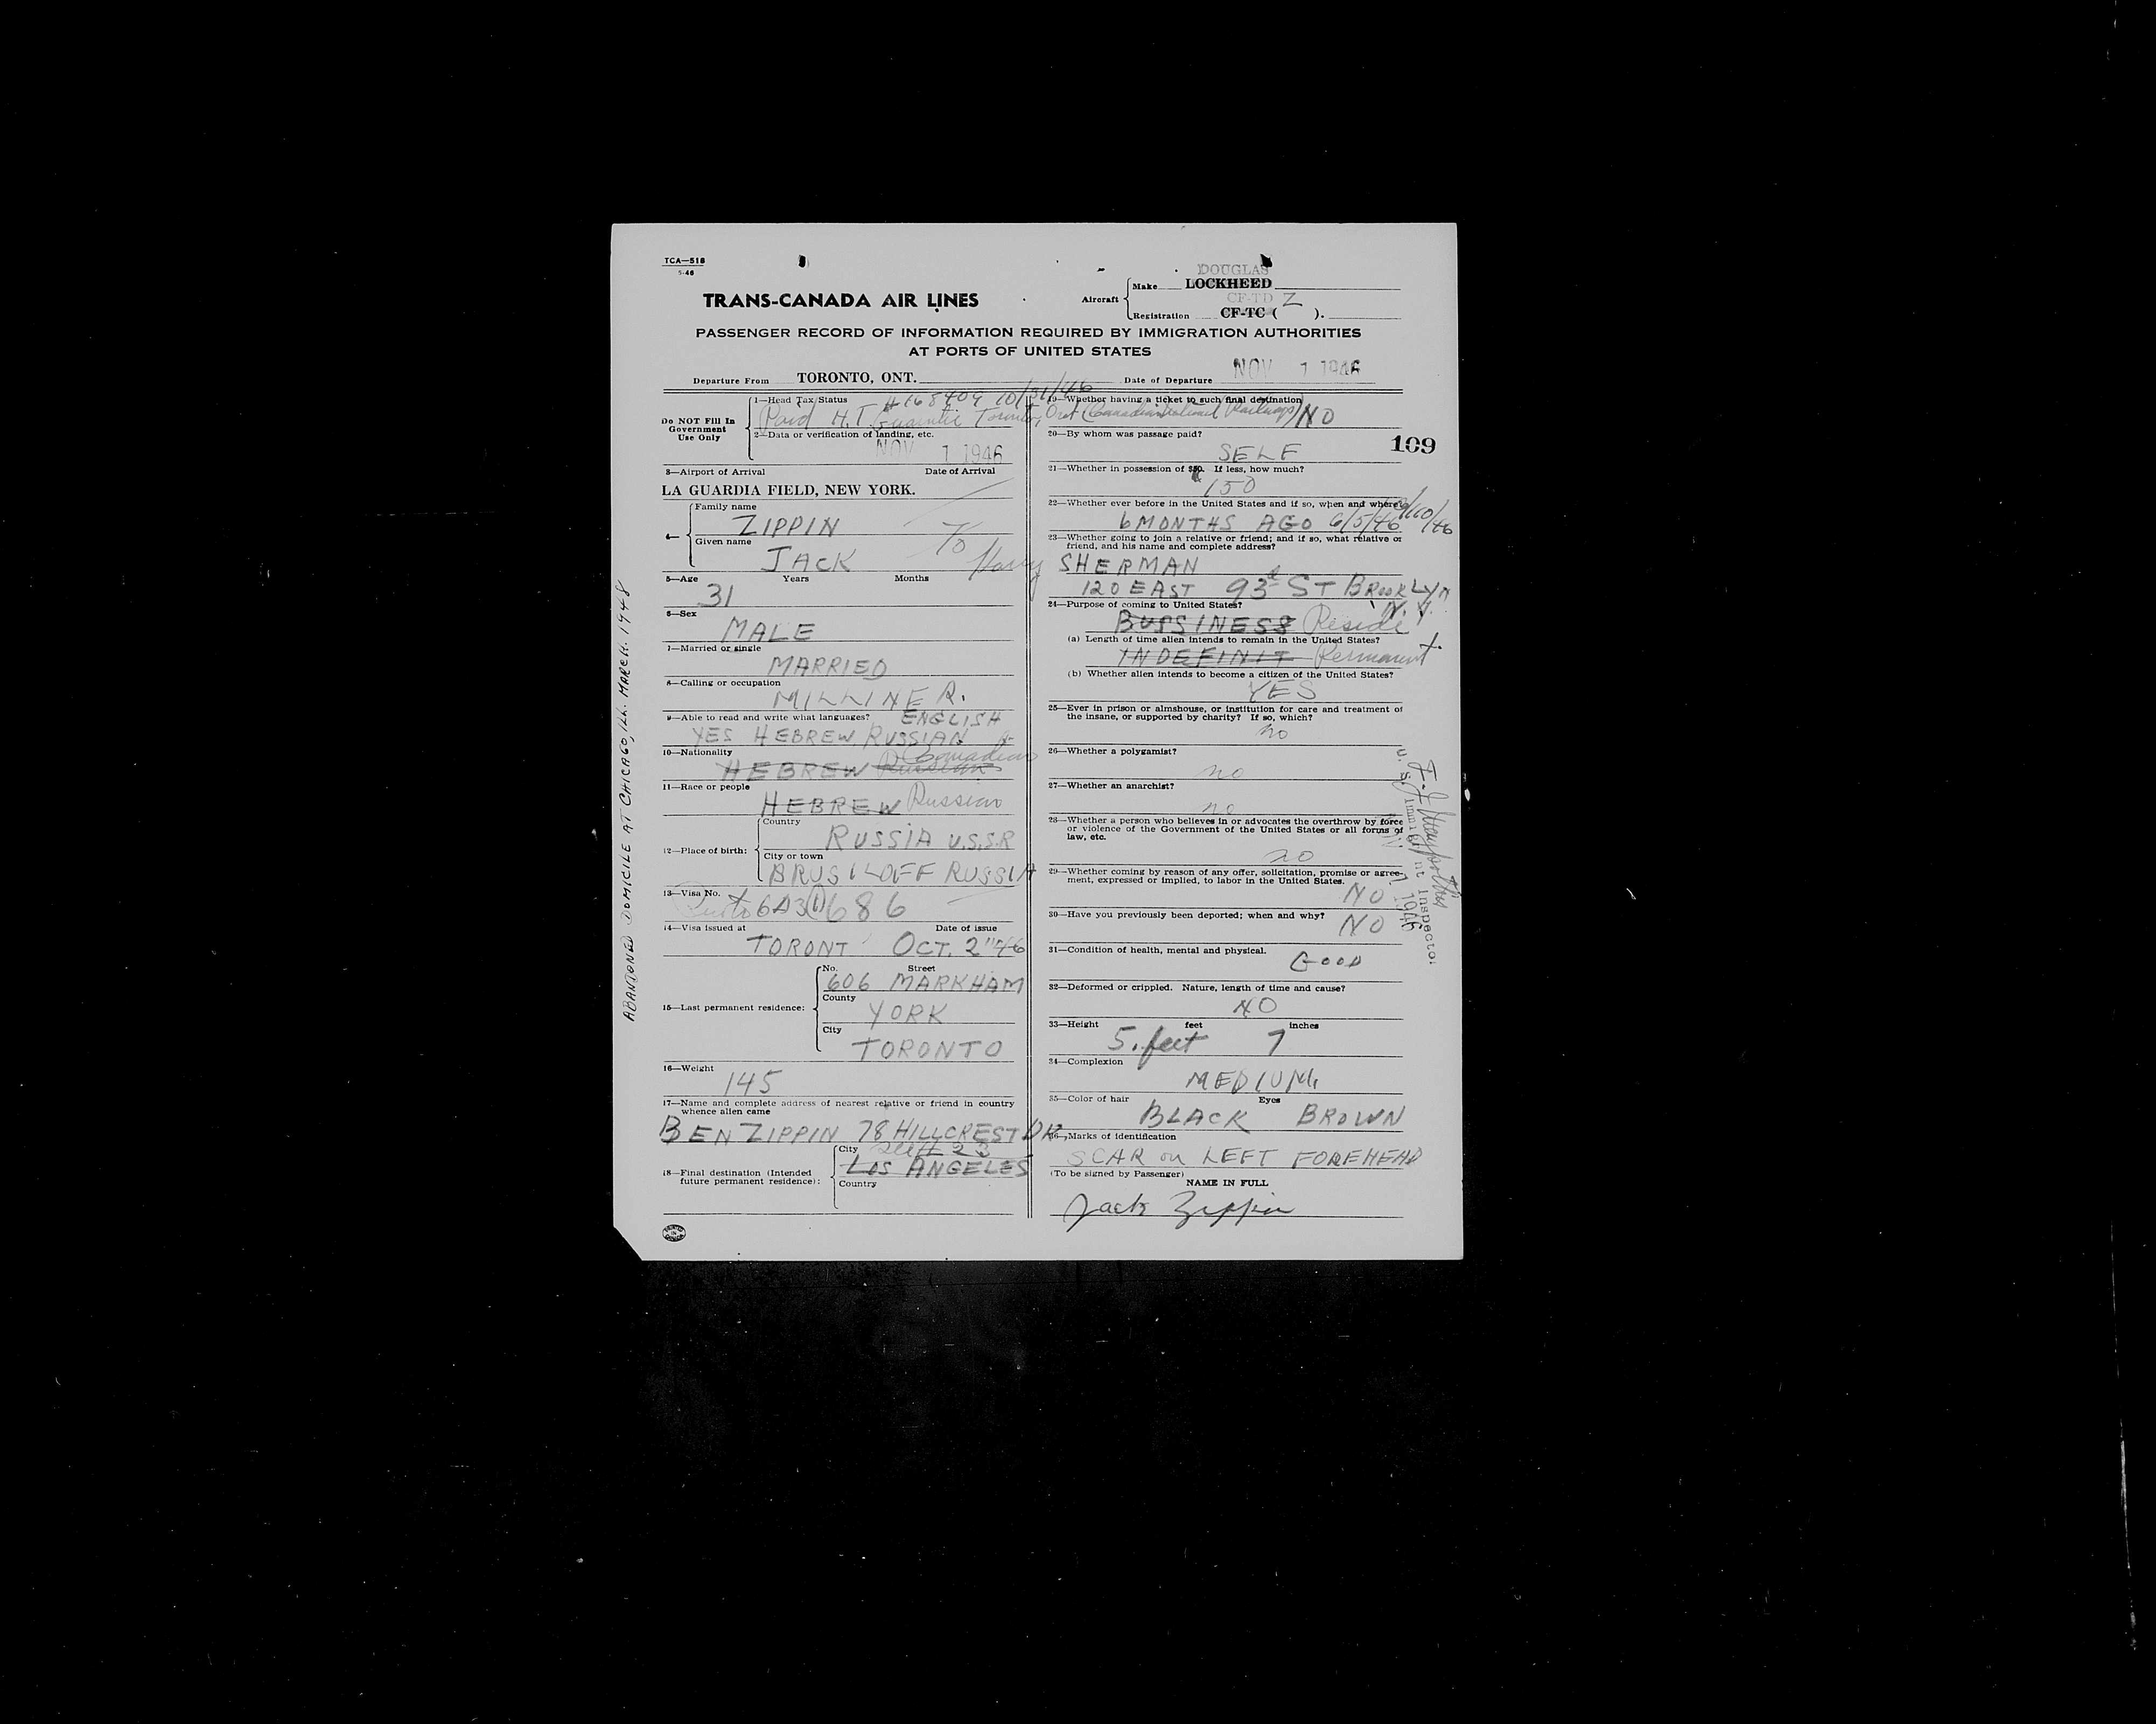 TCA—518
5-46
DOUGLAS
Make LOCKHEED
TRANS-CANADA AIR LINES
Aircraft
CF-TD Z
Registration CF-TC ( ).
PASSENGER RECORD OF INFORMATION REQUIRED BY IMMIGRATION AUTHORITIES
AT PORTS OF UNITED STATES
NOV 1 1946
Departure From TORONTO, ONT.
Date of Departure
Do NOT Fill In Government Use Only
1—Head Tax Status #168409 10/31/46
Paid H.T. Toronto, Ont (Canadian National Railways)
2—Data or verification of landing, etc.
NOV 1 1946
3—Airport of Arrival Date of Arrival
LA GUARDIA FIELD, NEW YORK.
4—
Family name
ZIPPIN
Given name
JACK
5—Age Years Months
31
6—Sex
MALE
7—Married or single
MARRIED
8—Calling or occupation
MILLINER.
9—Able to read and write what languages? ENGLISH
YES HEBREW, RUSSIAN
10—Nationality
HEBREW Russian Canadian
11—Race or people
HEBREW Russian
12—Place of birth:
Country
RUSSIA U.S.S.R
City or town
BRUSILOFF RUSSIA
13—Visa No.
6A3(1)686
14—Visa issued at Date of issue
TORONT OCT. 2 "46
15—Last permanent residence:
No. Street
606 MARKHAM
County
YORK
City
TORONTO
16—Weight
145
17—Name and complete address of nearest relative or friend in country
whence alien came
BEN ZIPPIN 78 HILLCREST DR,
18—Final destination (Intended
future permanent residence):
City See # 23
LOS ANGELES
Country
19—Whether having a ticket to such final destination
NO
20—By whom was passage paid?
SELF
109
21—Whether in possession of $50. If less, how much?
150
22—Whether ever before in the United States and if so, when and where?
6 MONTHS AGO 6/5/46 9/10/46
23—Whether going to join a relative or friend; and if so, what relative or
friend, and his name and complete address?
To Harry SHERMAN
120 EAST 93d ST BROOKLYN
N.Y.
24—Purpose of coming to United States?
BUSSINESS Reside
(a) Length of time alien intends to remain in the United States?
INDEFINIT Permanent
(b) Whether alien intends to become a citizen of the United States?
YES
25—Ever in prison or almshouse, or institution for care and treatment of
the insane, or supported by charity? If so, which?
no
26—Whether a polygamist?
no
27—Whether an anarchist?
no
28—Whether a person who believes in or advocates the overthrow by force
or violence of the Government of the United States or all forms of
law, etc.
no
29—Whether coming by reason of any offer, solicitation, promise or agree-
ment, expressed or implied, to labor in the United States.
NO
30—Have you previously been deported; when and why?
NO
31—Condition of health, mental and physical.
GOOD
32—Deformed or crippled. Nature, length of time and cause?
NO
33—Height feet inches
5. feet 7
34—Complexion
MEDIUM
35—Color of hair Eyes
BLACK BROWN
36—Marks of identification
SCAR on LEFT FOREHEAD
(To be signed by Passenger)
NAME IN FULL
Jack Zippin
ABANDONED DOMICILE AT CHICAGO, ILL. MARCH. 1948
U. S. Immigrant Inspector
NOV 1 1946
PRINTED IN CANADA